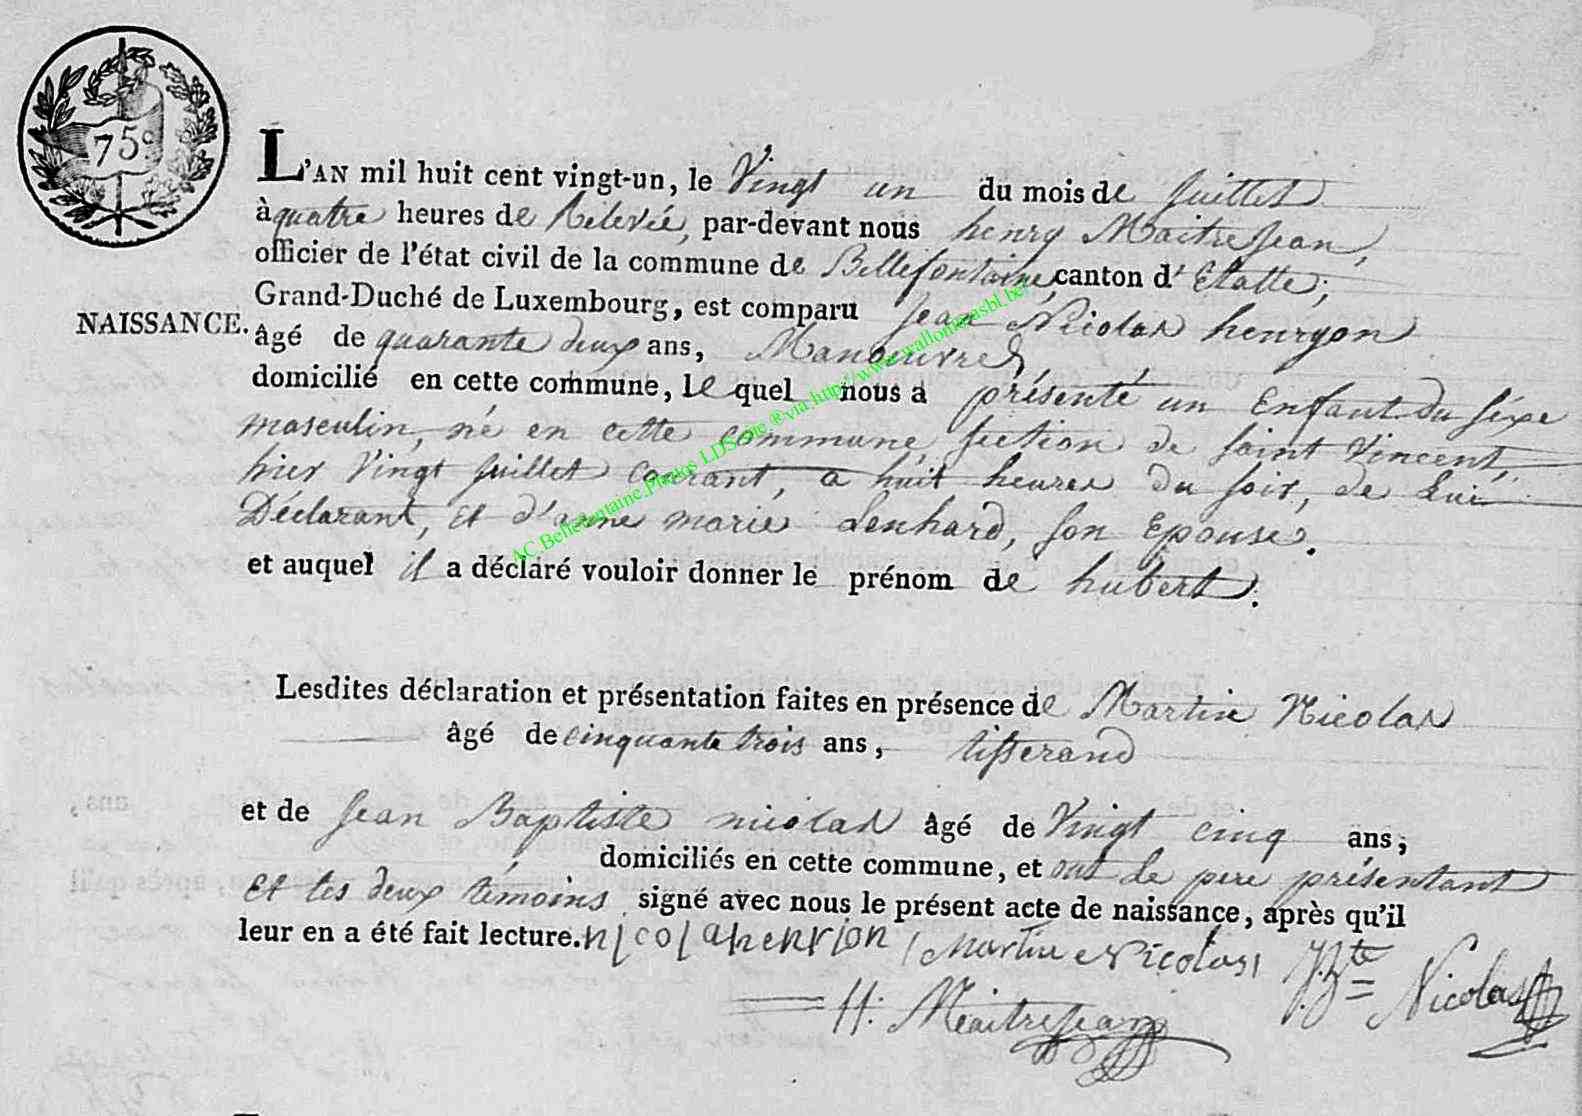 75c
L'AN mil huit cent vingt-un, le Vingt un du mois de juillet
à quatre heures de Relevée, par-devant nous henry Maitrejean,
officier de l'état civil de la commune de Bellefontaine, canton d'Etatte;
Grand-Duché de Luxembourg, est comparu jean Nicolas henryon
NAISSANCE.
âgé de quarante deux ans, Manoeuvre,
domicilié en cette commune, le quel nous a présenté un Enfant du séxe
masculin, né en cette commune, section de saint Vincent,
hier Vingt juillet Courant, a huit heures du soir, de Lui
Déclarant, et d'anne marie Lenhard, son Epouse.
et auquel il a déclaré vouloir donner le prénom de hubert.
Lesdites déclaration et présentation faites en présence de Martin Nicolas
âgé de cinquante trois ans, tisserand
et de jean Baptiste nicolas âgé de Vingt cinq ans,
domiciliés en cette commune, et ont Le pere présentant
et les deux témoins signé avec nous le présent acte de naissance, après qu'il
leur en a été fait lecture. nicola henrion Martin Nicolas
J. Bte Nicolas
H: Maitrejean
AC.Bellefontaine.Photos LDS.org ®via.http://www.wallonia.asbl.be/